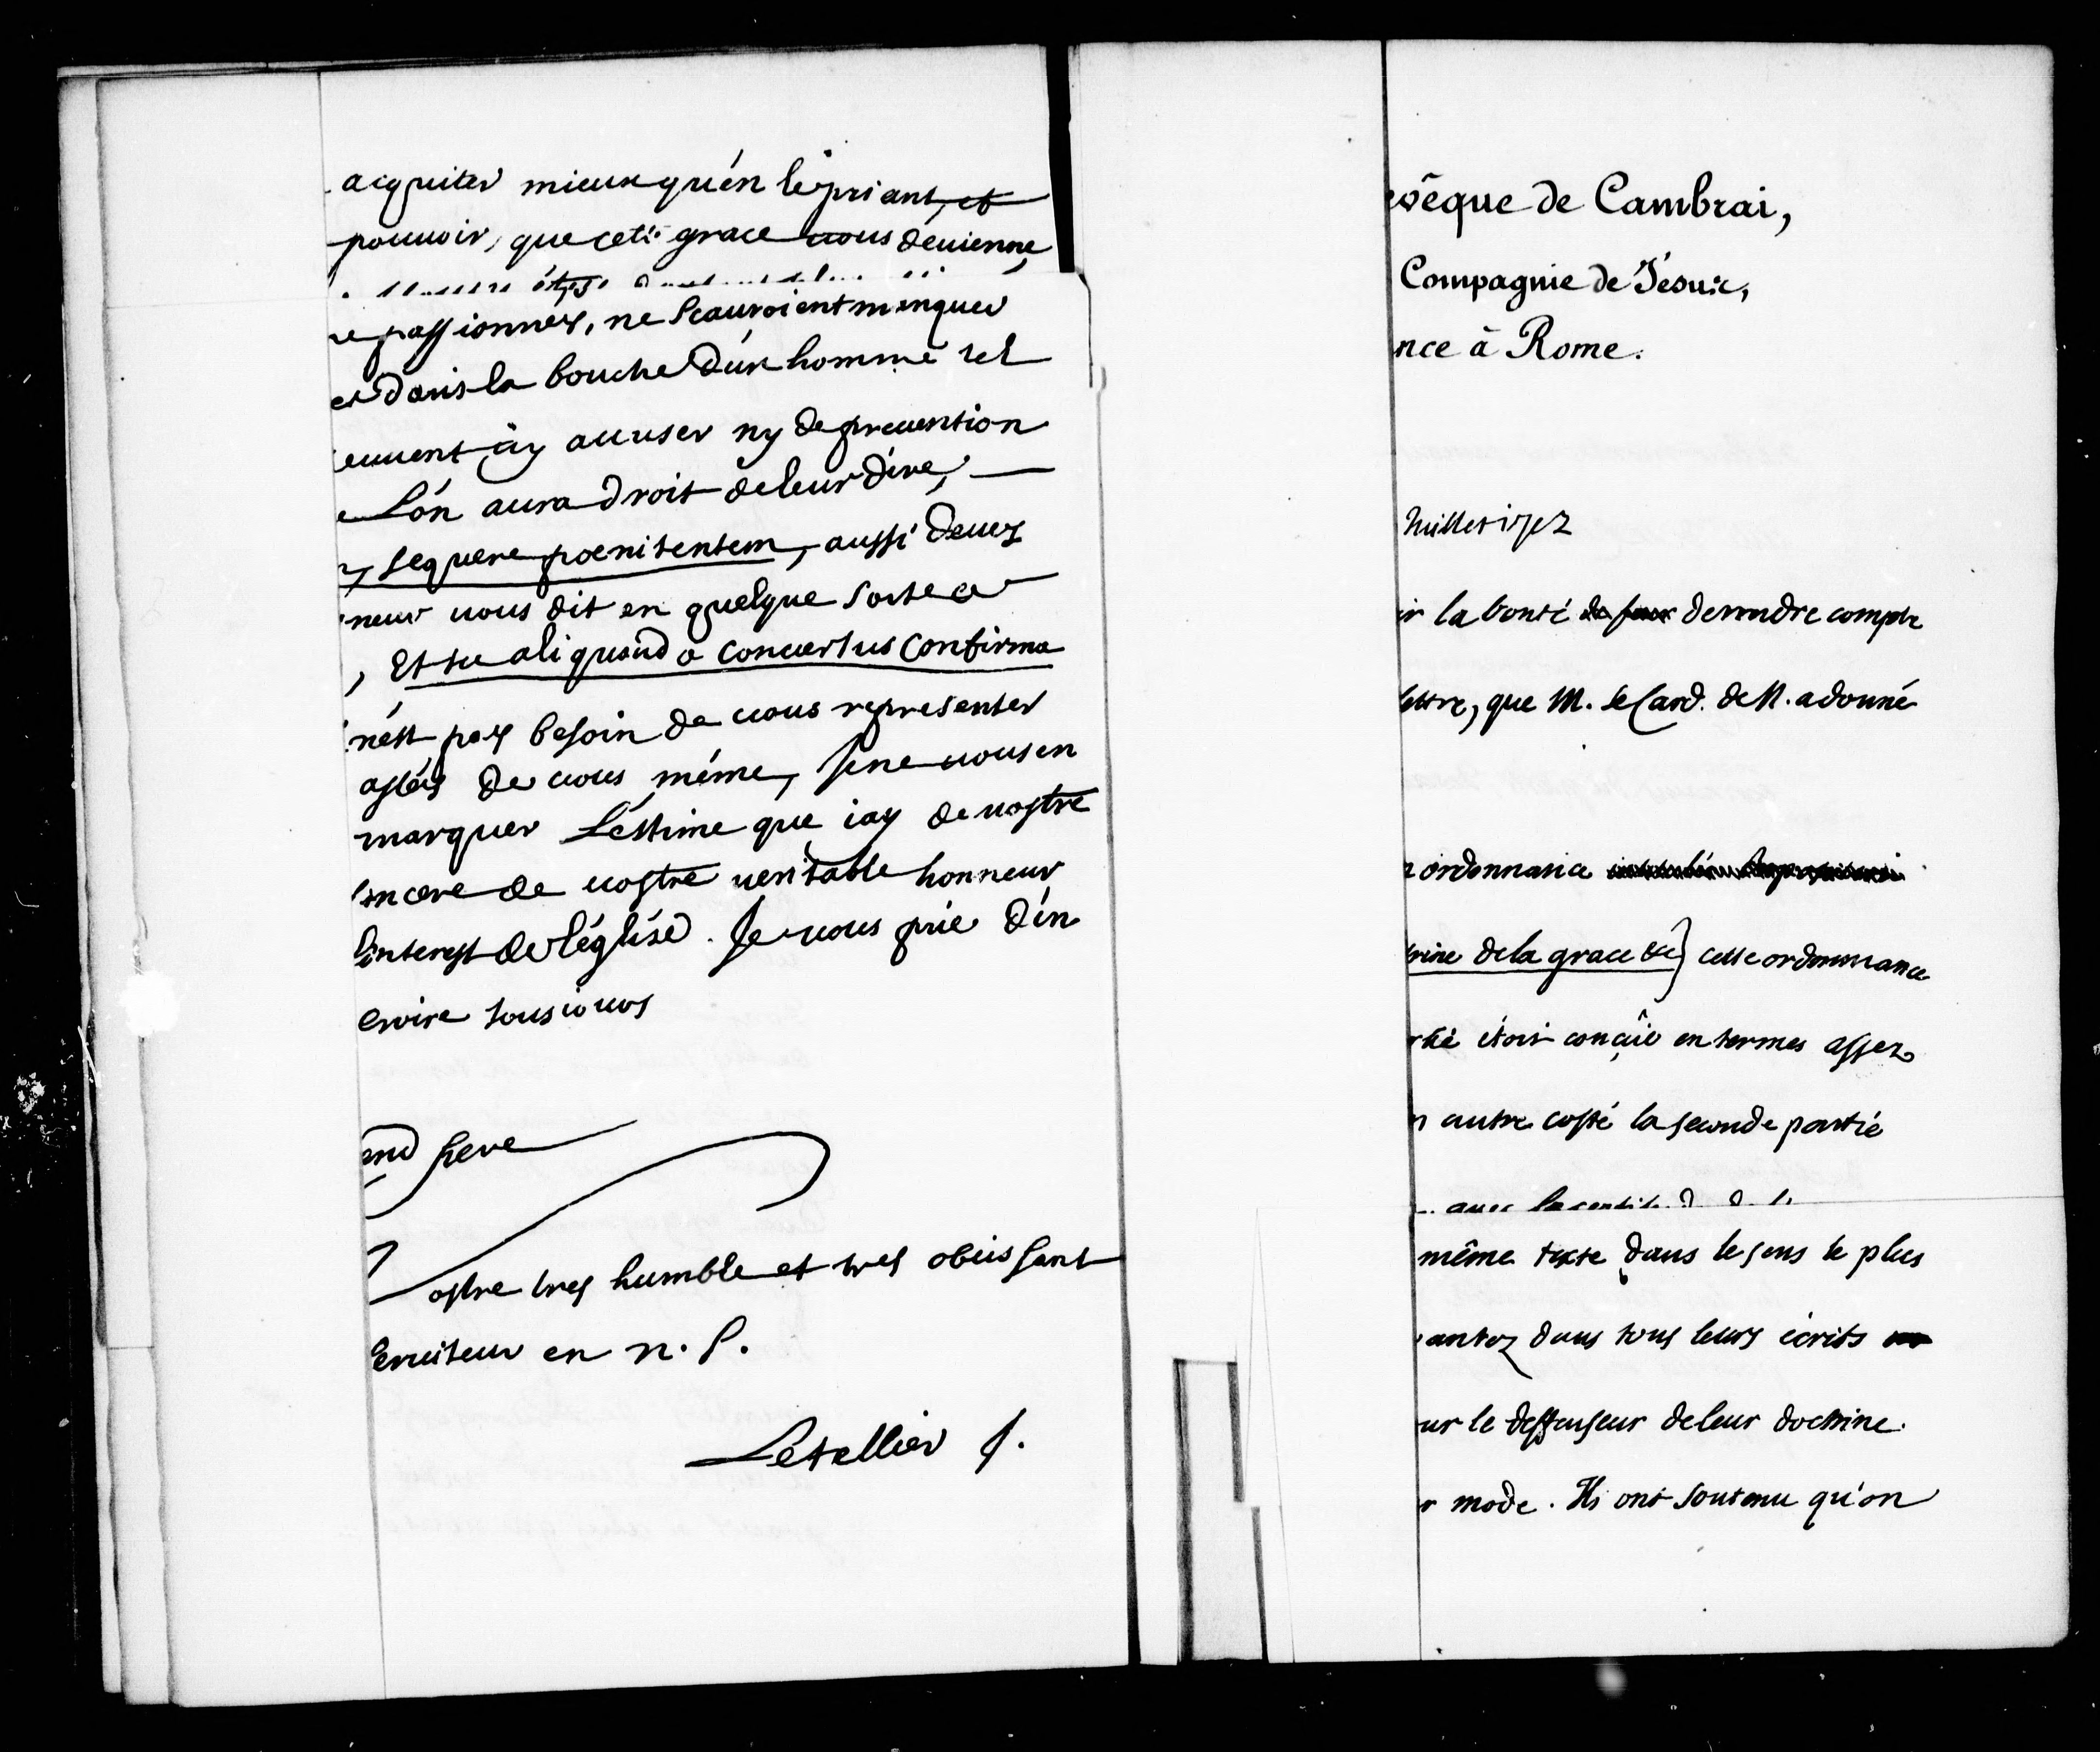 acquiter mieux qu'én lépriant, et
pouuoir, que cete grace uous déuienne
passionnez, ne scauroient manquer
dans la bouche d'un homme tel
euuent ây accuser ny de preuention
L'ón aura droit de leur dire,
sequere poenitentem, aussi deuez
neur uous dit en quelque sorte ce
, Et tu aliquando conuertus confirma
n'ést pas besoin de uous representer
assés de uous méme, Je ne uous en
marquer L'éstime que iay de uostre
sincere de uostre ueritable honneur
l'interest de l'église. Je uous prie d'én
croire tousiours
end pere
Vostre tres humble et tres obeissant
seruiteur en n. S.
Letellier J.
evêque de Cambrai,
Compagnie de Jésus,
nce à Rome.
Juillet
ir la bonté de rendre compte
lettre, que M. le Card. de N. a donné
ordonnance
trine de la grace &c] cette ordonnance
étoit conçûe en termes assez
n autre costé la seconde partie
avec
même texte dans le sens le plus
antez dans tous leurs écrits
ur le deffenseur de leur doctrine.
r mode. Ils ont soutenu qu'on